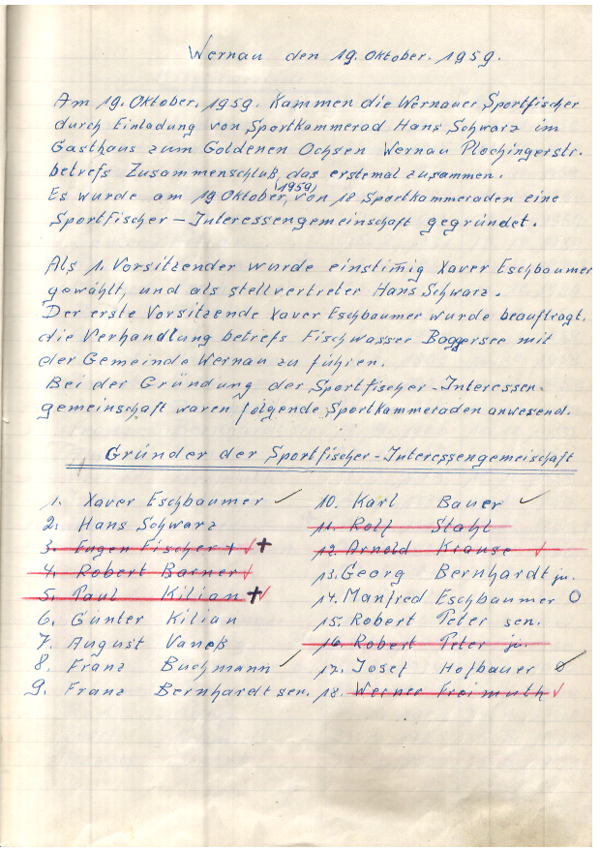 Wernau den 19. Oktober. 1959.
Am 19. Oktober. 1959. Kammen die Wernauer Sportfischer
durch Einladung von Sportkammerad Hans Schwarz im
Gasthaus zum Goldenen Ochsen Wernau Plochingerstr.
betrefs Zusammenschluß, das erstemal zusammen.
Es wurde am 19 Oktober, (1959) von 18 Sportkammeraden eine
Sportfischer – Interessengemeinschaft gegründet.
Als 1. Vorsitzender wurde einstimig Xaver Eschbaumer
gewählt, und als stellvertreter Hans Schwarz.
Der erste Vorsitzende Xaver Eschbaumer wurde beauftragt,
die Verhandlung betrefs Fischwasser Baggersee mit
der Gemeinde Wernau zu führen.
Bei der Gründung der Sportfischer-Interessen-
gemeinschaft waren folgende Sportkammeraden anwesend.
Gründer der Sportfischer-Interessengemeischaft
1. Xaver Eschbaumer ✓
2. Hans Schwarz
3. Eugen Fischer + ✓ +
4. Robert Barner ✓
5. Paul Kilian + ✓
6. Günter Kilian
7. August Vaneß
8. Franz Buchmann ✓
9. Franz Bernhardt sen.
10. Karl Bauer ✓
11. Rolf Stahl
12. Arnold Krause ✓
13. Georg Bernhardt ju.
14. Manfred Eschbaumer O
15. Robert Peter sen.
16. Robert Peter ju.
17. Josef Hofbauer
18. Werner Freimuth ✓